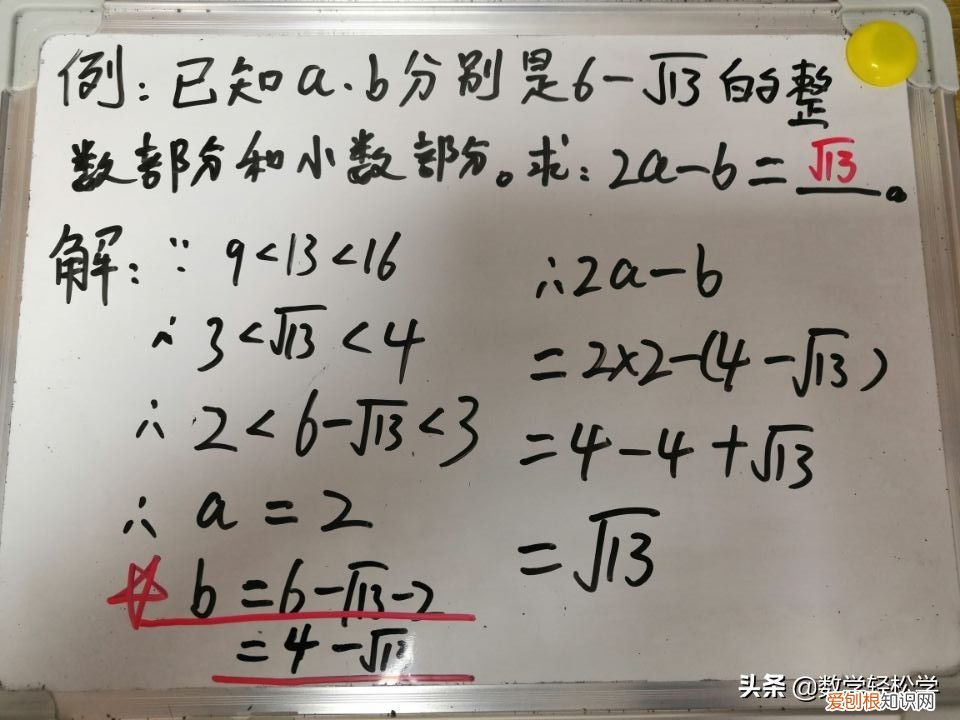 例:已知a.b分别是6-√13的整
数部分和小数部分。求:2a-b=√13。
解:∵ 9<13<16
∴ 3<√13<4
∴ 2<6-√13<3
∴ a=2
☆ b=6-√13-2
=4-√13
∴2a-b
=2×2-(4-√13)
=4-4+√13
=√13
头条 @数学轻松学
爱刨根知识网